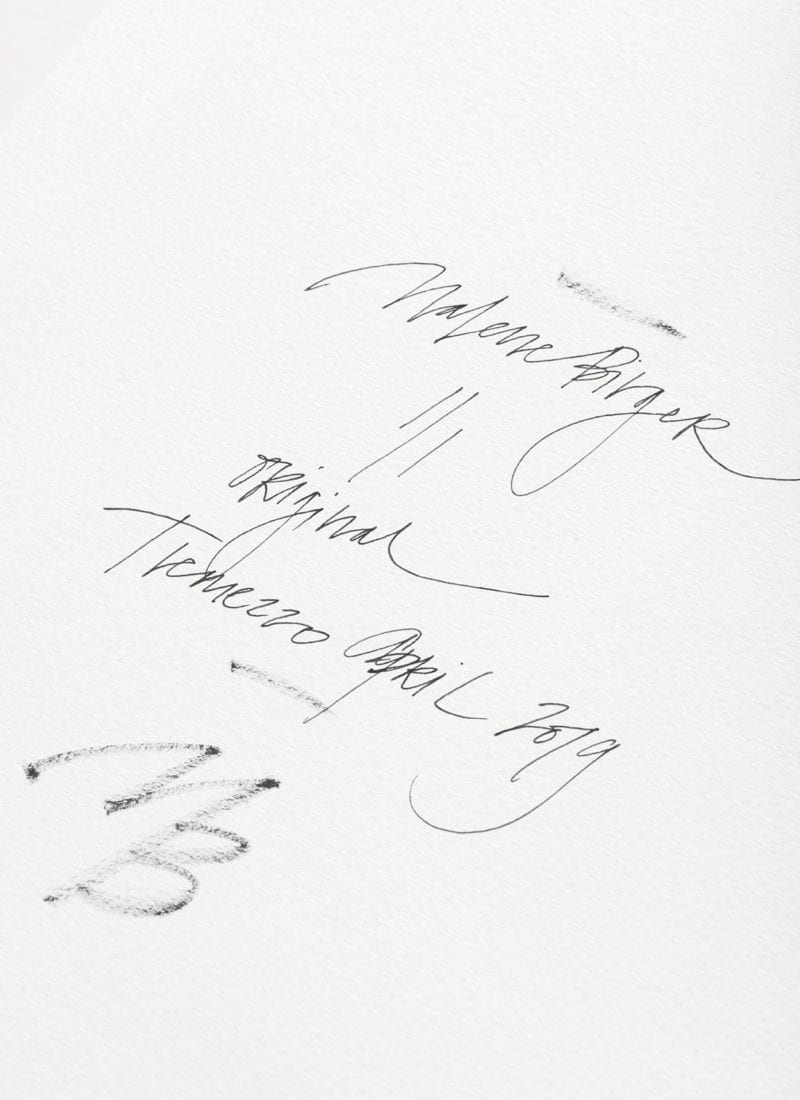 Malene Birger
original
Tremezzo April 2019
MB